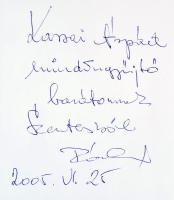 Kassai Árpád
mindengyűjtő
barátomnak
Szentesből
2005. VI. 25